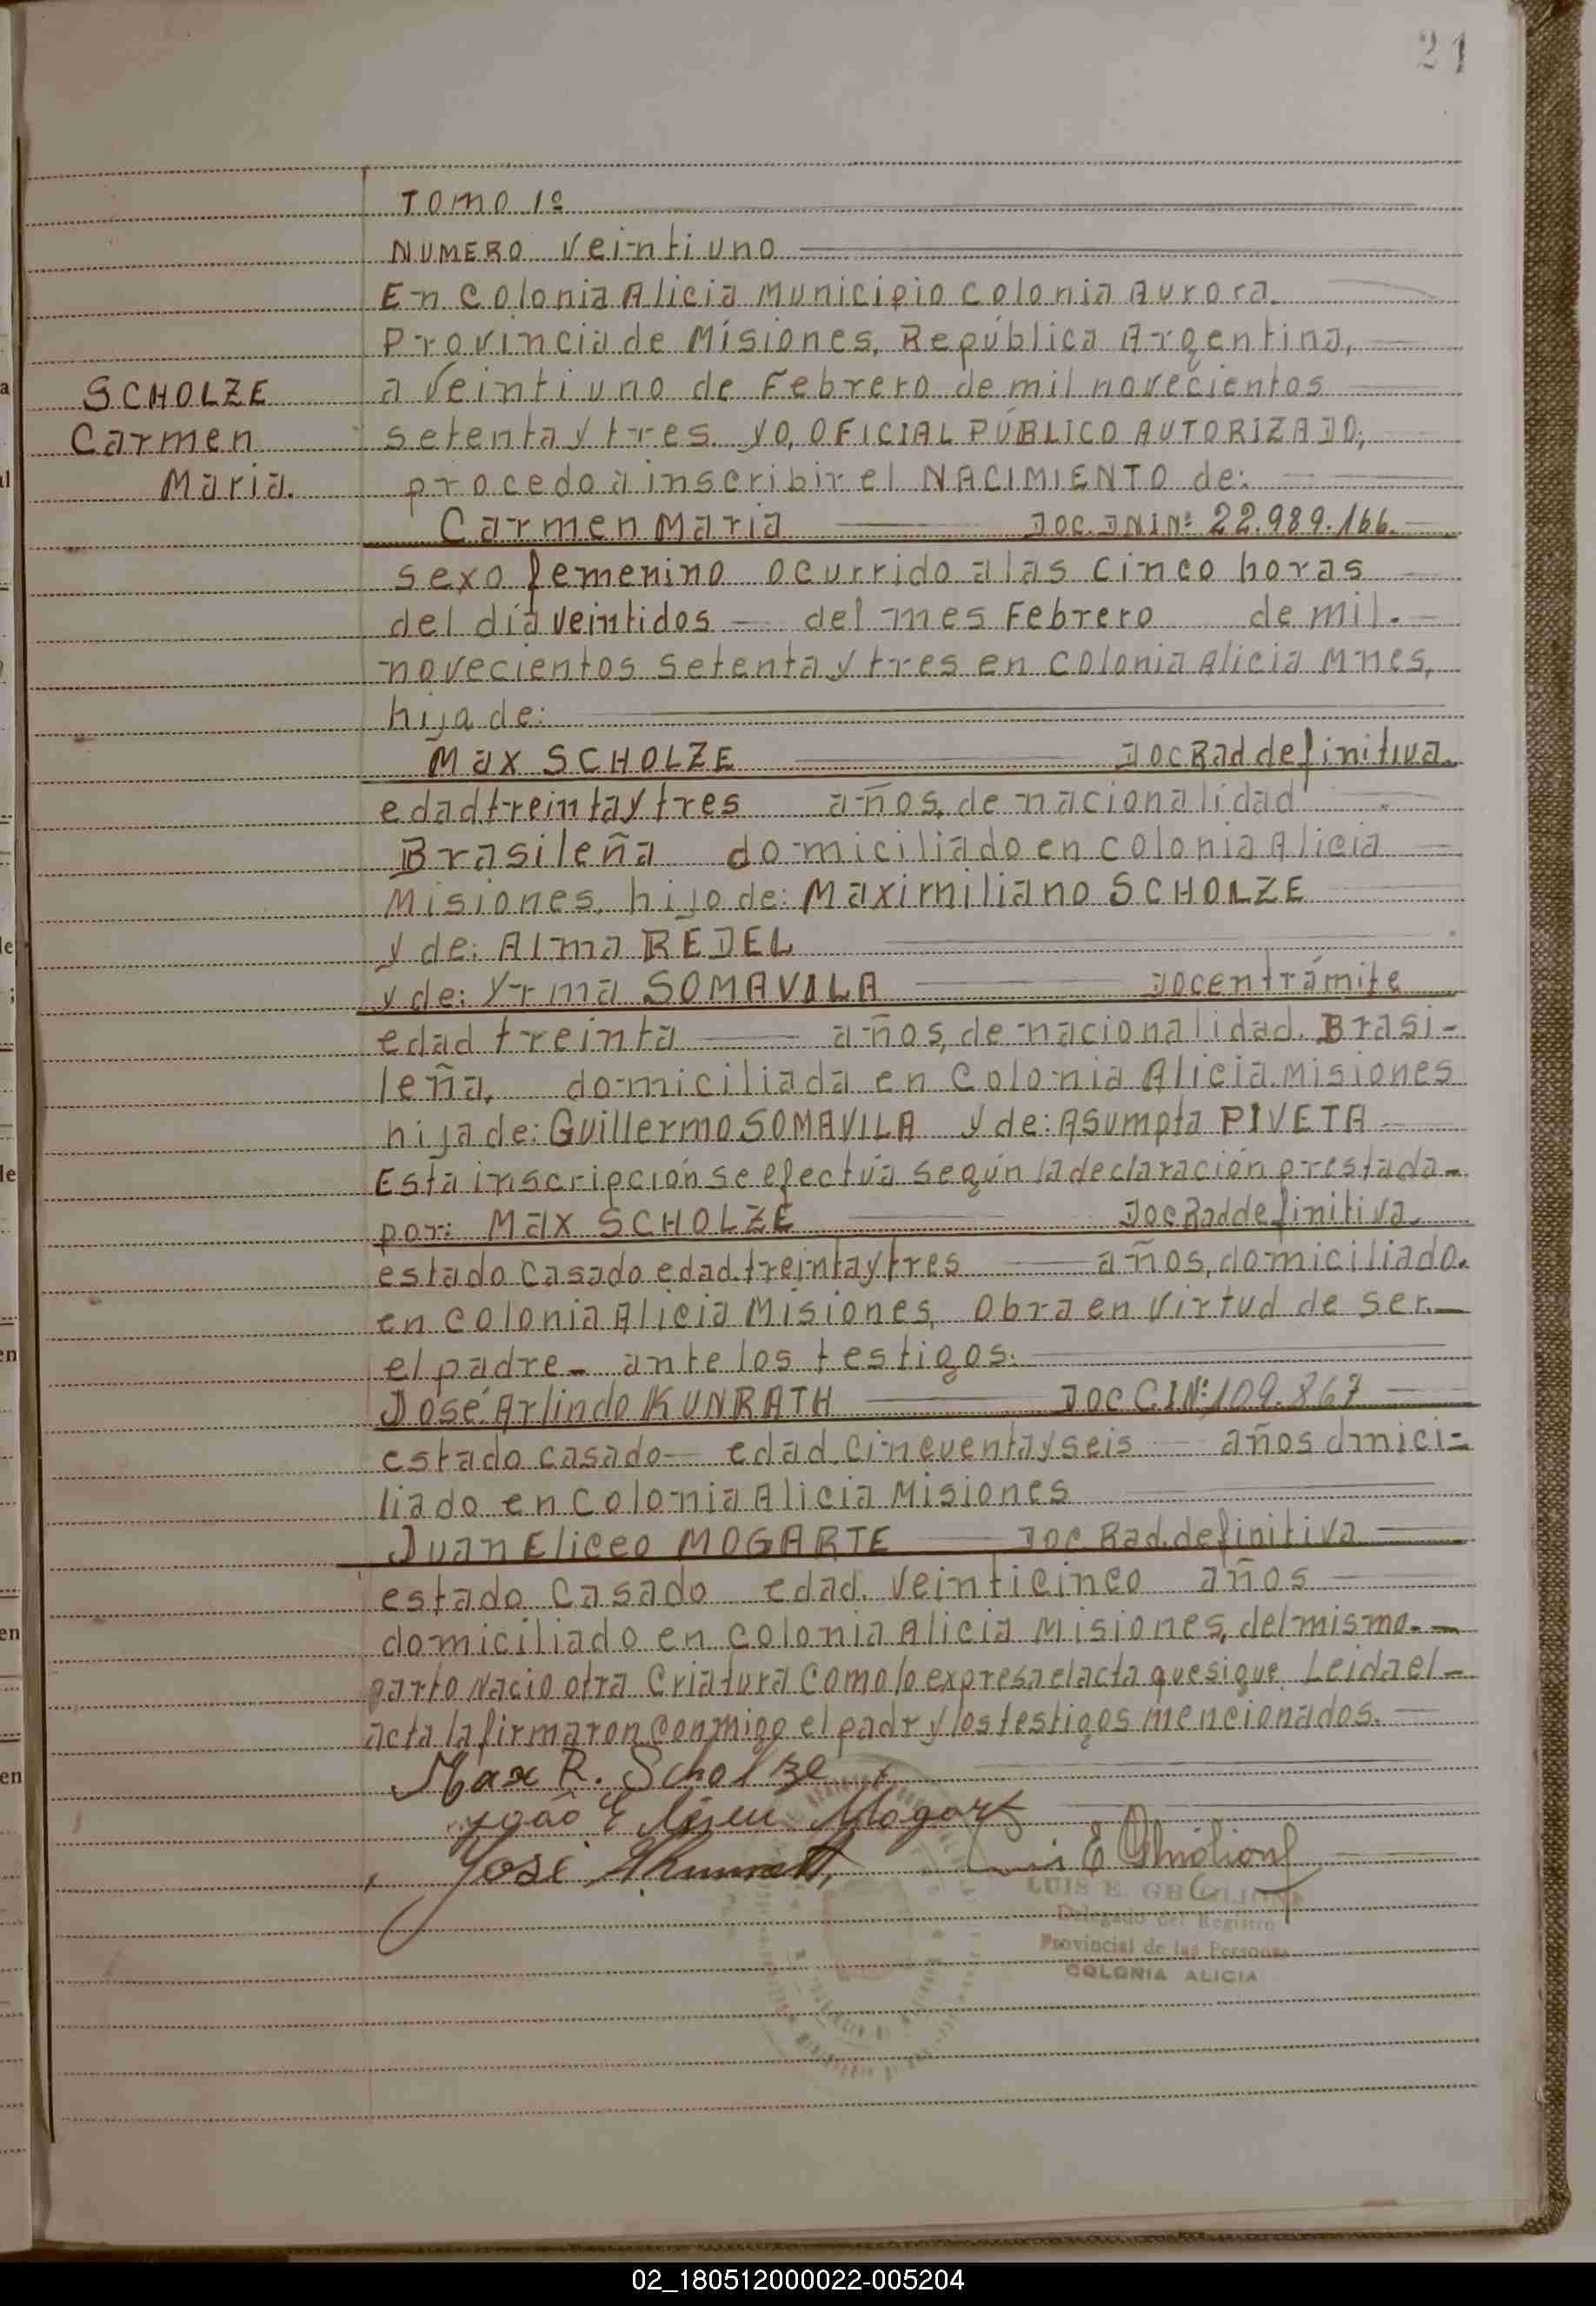 21
TOMO 1º
NUMERO Veintiuno
En Colonia Alicia Municipio Colonia Aurora.
Provincia de Misiones, República Argentina,
SCHOLZE a Veintiuno de Febrero de mil novecientos
Carmen setenta y tres. yo, OFICIAL PÚBLICO AUTORIZADO,
Maria. procedo a inscribir el NACIMIENTO de:
Carmen Maria DOC. DNI Nº 22.989.166.
sexo femenino ocurrido a las cinco horas
del día veintidos del mes Febrero de mil.
novecientos setenta y tres en Colonia Alicia Mnes,
hija de:
Max SCHOLZE Doc Rad definitiva.
edad treinta y tres años, de nacionalidad
Brasileña domiciliado en colonia Alicia
Misiones, hijo de: Maximiliano SCHOLZE
y de: Alma REDEL
y de: Yrma SOMAVILA Doc en trámite
edad treinta años, de nacionalidad. Brasi-
leña, domiciliada en Colonia Alicia. Misiones
hija de: Guillermo SOMAVILA y de: Asumpta PIVETA
Esta inscripción se efectúa según la declaración prestada
por: Max SCHOLZE Doc Rad definitiva.
estado Casado edad. treinta y tres años, domiciliado.
en Colonia Alicia Misiones, Obra en virtud de ser.
el padre - ante los testigos.
José Arlindo KUNRATH Doc C.I Nº 109.867
estado casado edad. cincuenta y seis años dmici-
liado en Colonia Alicia Misiones
Juan Eliceo MOGARTE Doc Rad. definitiva
estado Casado edad. Veinticinco años
domiciliado en Colonia Alicia Misiones, del mismo.
parto Nacio otra Criatura Como lo expresa el acta que sigue. Leida el
acta la firmaron Conmigo el padr y los testigos mencionados.
Max R. Scholze
João Eliseu Mogart
José Luis E Ghiglione
LUIS E. GHIGLIONE
Delegado del Registro
Provincial de las Personas
COLONIA ALICIA
02_180512000022-005204